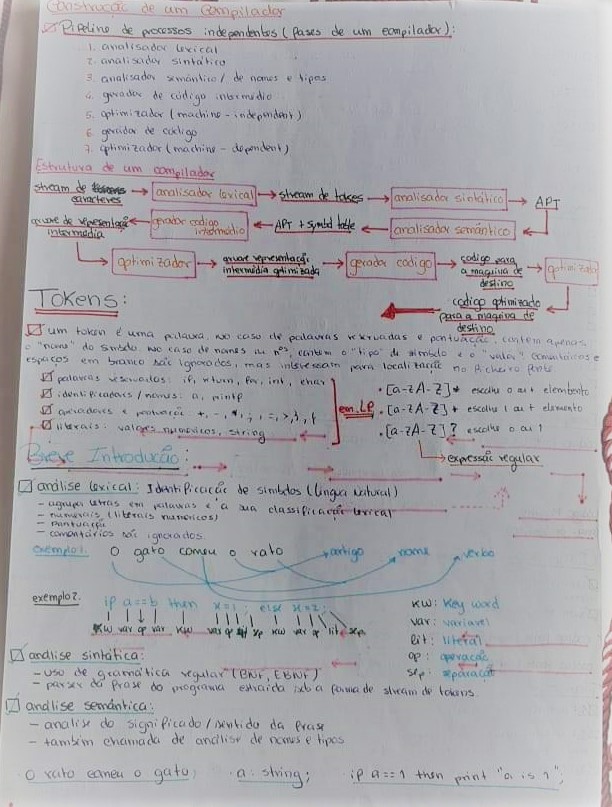 Construção de um compilador
Pipeline de processos independentes (fases de um compilador):
1. analisador lexical
2. analisador sintático
3. analisador semântico / de nomes e tipos
4. gerador de código intermédio
5. optimizador (machine-independent)
6. gerador de código
7. optimizador (machine-dependent)
Estrutura de um compilador
stream de caracteres → analisador lexical → stream de tokens → analisador sintático → APT
árvore de representação intermédia ← gerador código intermédio ← APT + symbol table ← analisador semântico
optimizador → árvore representação intermédia optimizada → gerador código → código para a maquina de destino → optimizador
código optimizado para a maquina de destino
Tokens:
um token é uma palavra, no caso de palavras reservadas e pontuação, contém apenas
o "nome" do símbolo, no caso de nomes ou nºs, contém o "tipo" de símbolo e o "valor" comentários e
espaços em branco são ignorados, mas interessam para localização no ficheiro fonte
palavras reservadas: if, return, for, int, char
identificadores / nomes: a, printf
operadores e pontuação
literais: valores numéricos, string
em LP
• [a-zA-Z]* escolhe 0 ou + elemento
• [a-zA-Z]+ escolhe 1 ou + elemento
• [a-zA-Z]? escolhe 0 ou 1
→ expressão regular
Breve Introdução:
análise lexical: Identificação de símbolos (língua natural)
- agrupa letras em palavras e a sua classificação lexical
- numerais (literais numéricos)
- pontuação
- comentários são ignorados
exemplo 1. O gato comeu o rato artigo nome verbo
exemplo 2. if a==b then x=1; else x=2;
KW var op var KW var op lit sep KW var op lit sep
KW: Key word
var: variavel
lit: literal
op: operação
sep: separação
análise sintática:
- uso de gramática regular (BNF, EBNF)
- parser da frase do programa estraída sob a forma de stream de tokens.
análise semântica:
- analise do significado / sentido da frase
- também chamada de análise de nomes e tipos
O rato comeu o gato; a: string; if a==1 then print "a is 1";